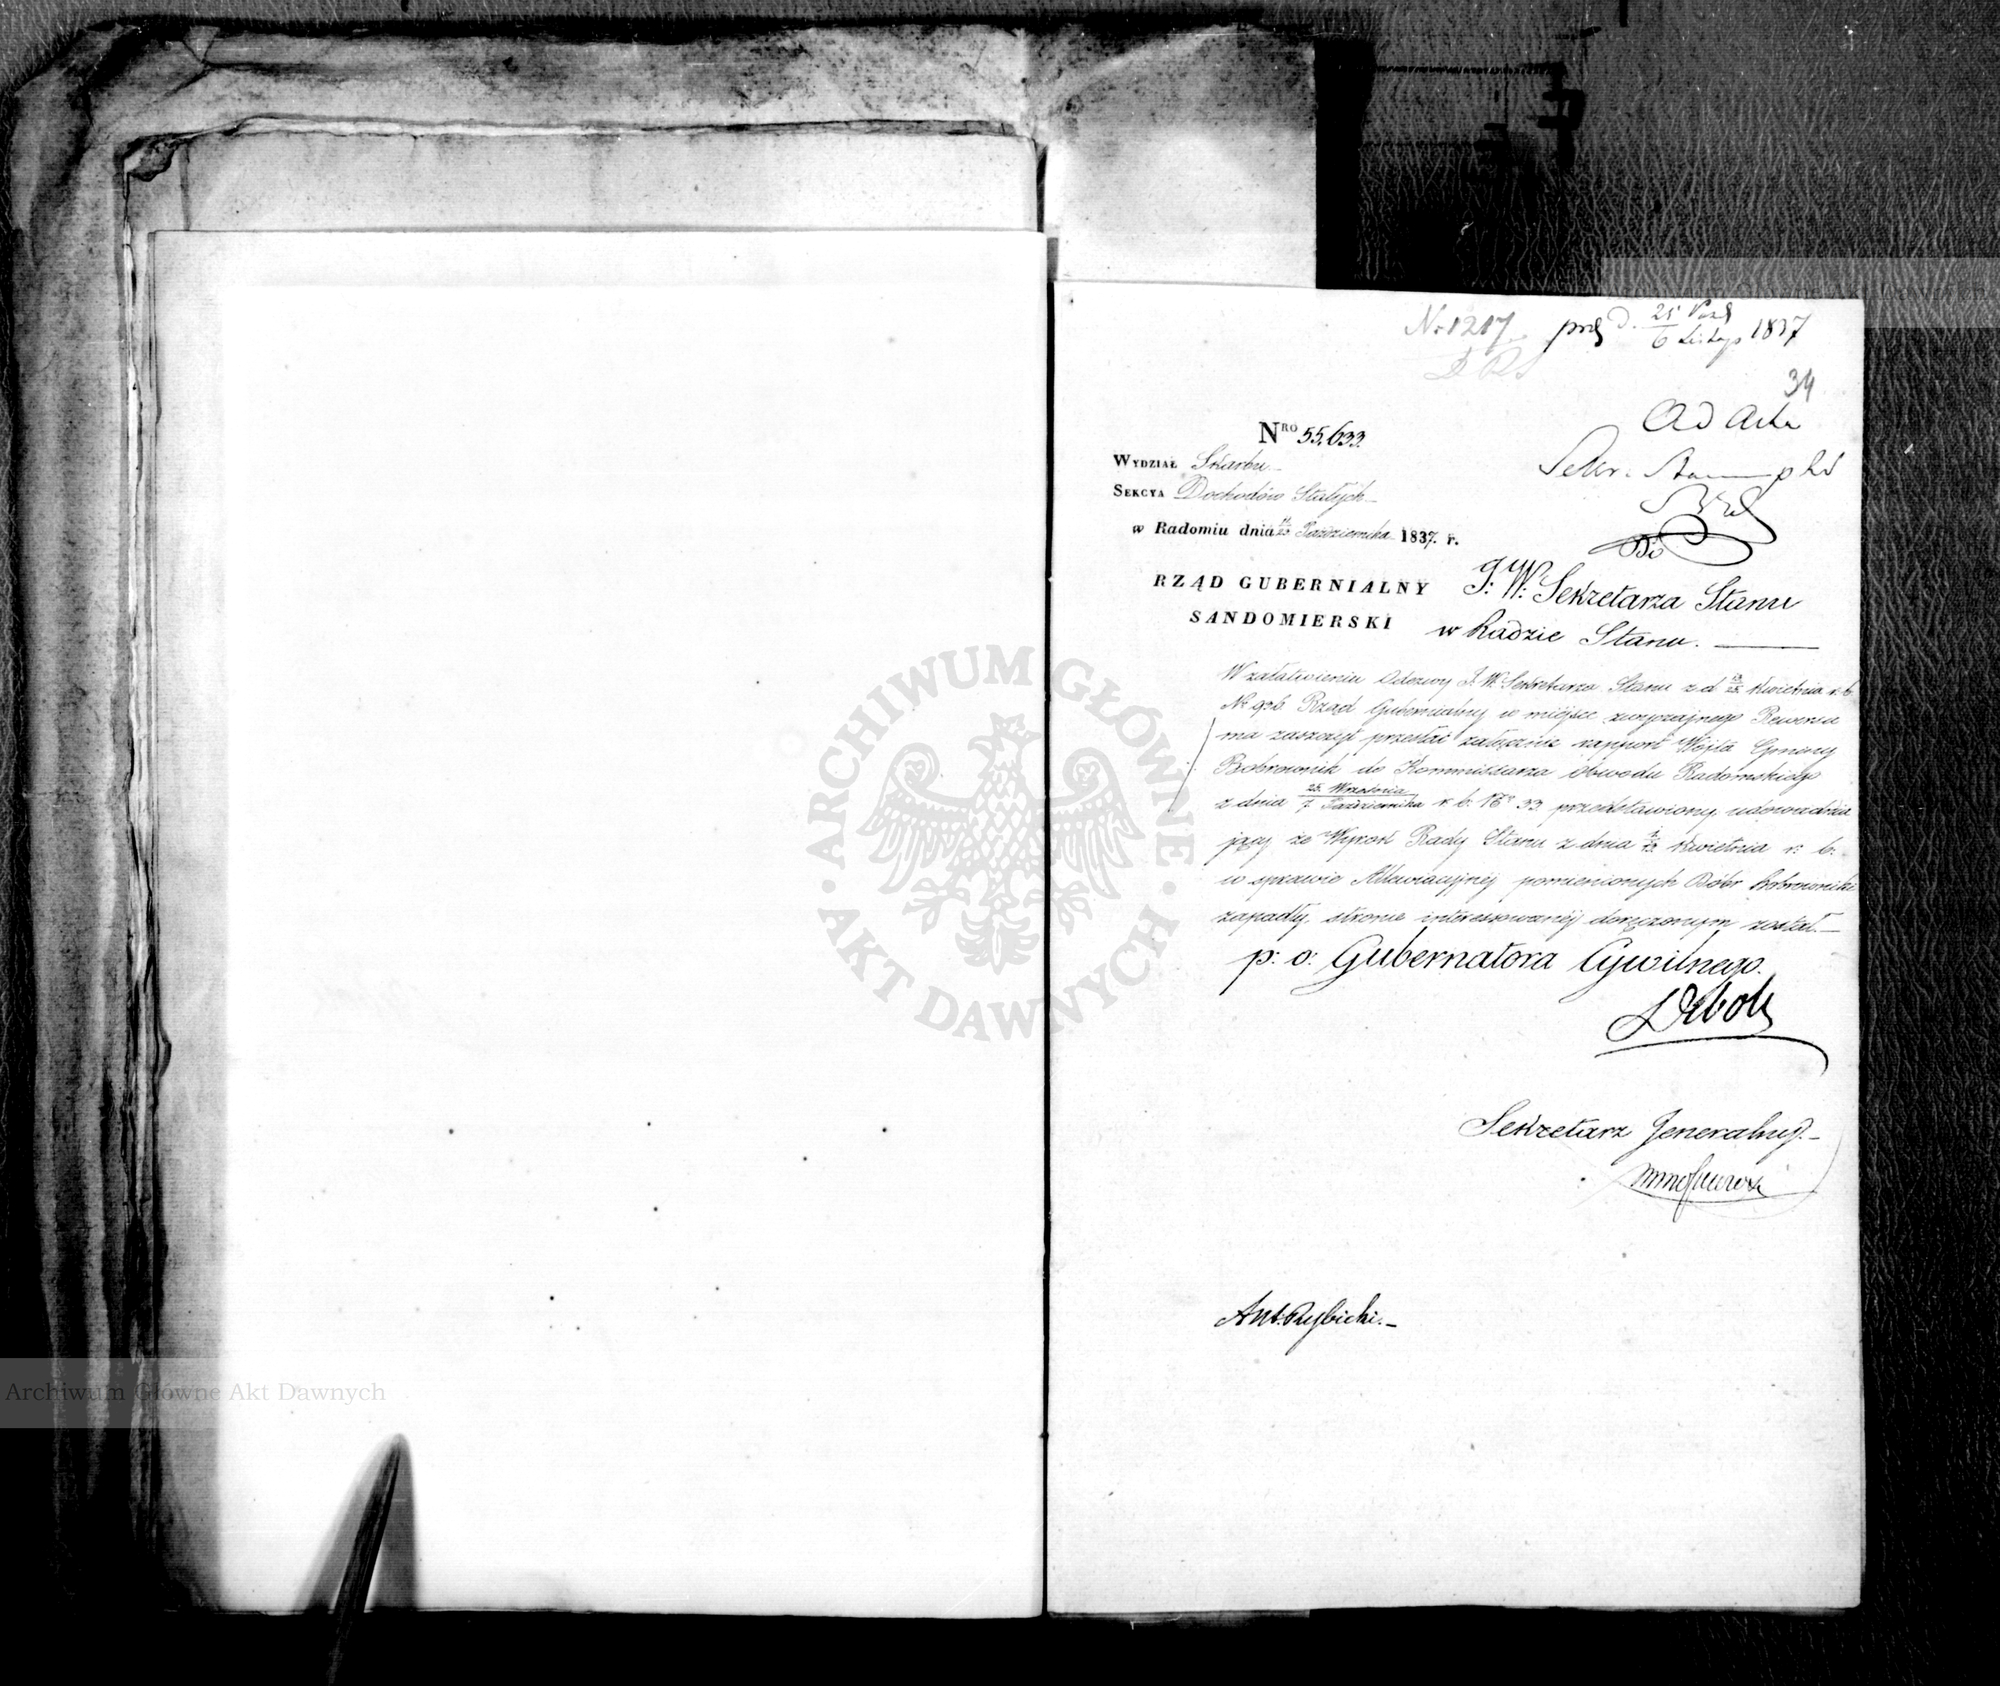 No 1217 prs d. 25 Paźd / 6 Listop 1837
34
Ad Acta
Sekr.
NRO 55,633.
WYDZIAŁ Skarbu
SEKCYA Dochodów Stałych
w Radomiu dnia 11/23 Października 1837. r.
Do
RZĄD GUBERNIALNY
SANDOMIERSKI
J: W: Sekretarza Stanu
w Radzie Stanu.
W załatwieniu Odezwy J. W. Sekretarza Stanu z d 13/25 Kwietnia r. b.
No 926. Rząd Gubernialny w miejsce zwyczajnego Rewersu
ma zaszczyt przesłać załącznie rapport Wójta Gminy
Bobrownik do Kommissarza Obwodu Radomskiego
z dnia 25. Września / 7. Października r. b. No 33 przedstawiony, udowadnia
jący że Wyrok Rady Stanu z dnia Kwietnia r: b:
w sprawie Allewiacyjnéj pomienionych Dóbr Bobrowniki
zapadły, stronie interessowanéj doręczonym został.
p: o: Gubernatora Cywilnego.
Deboli
Sekretarz Jeneralny.
Ant: Rybicki.
ARCHIWUM GŁÓWNE
AKT DAWNYCH
Archiwum Główne Akt Dawnych